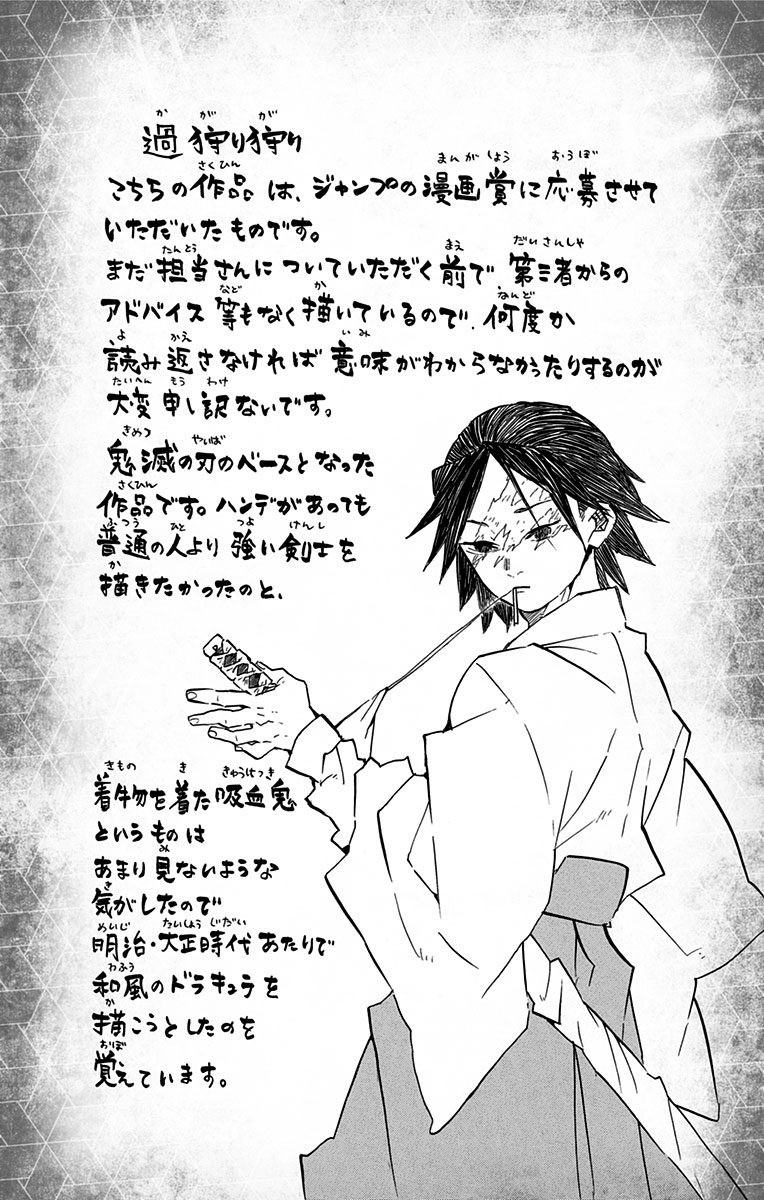 過狩り狩り
こちらの作品は、ジャンプの漫画賞に応募させて
いただいたものです。
まだ担当さんについていただく前で、第三者からの
アドバイス等もなく描いているので、何度か
読み返さなければ意味がわからなかったりするのが
大変申し訳ないです。
鬼滅の刃のベースとなった
作品です。ハンデがあっても
普通の人より強い剣士を
描きたかったのと、
着物を着た吸血鬼
というものは
あまり見ないような
気がしたので
明治・大正時代あたりで
和風のドラキュラを
描こうとしたのを
覚えています。